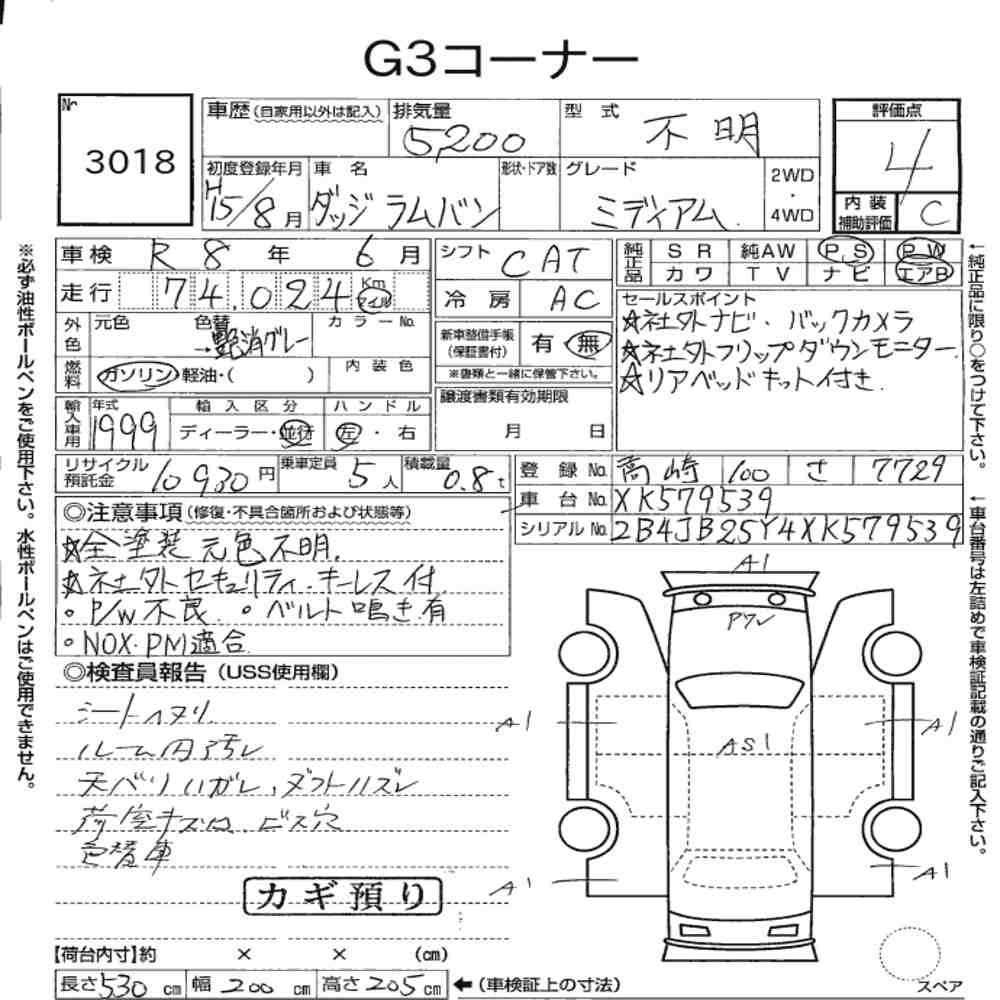 G3コーナー
No. 3018
車歴(自家用以外は記入) 排気量 5200 型式 不明
評価点 4
内装補助評価 C
初度登録年月 H15/8月 車名 ダッジ ラムバン 形状・ドア数 グレード ミディアム 2WD・4WD
※必ず油性ボールペンをご使用下さい。水性ボールペンはご使用できません。
車検 R8年6月 シフト CAT
走行 74.024 Km マイル 冷房 AC
純正品 SR 純AW P.S P.W
カワ TV ナビ エアB
外色 元色 色替→艶消グレー カラーNo.
新車整備手帳(保証書付) 有 無
※書類と一緒に保管下さい。
燃料 ガソリン・軽油・( ) 内装色
セールスポイント
☆社外ナビ・バックカメラ
☆社外フリップダウンモニター
☆リアベッドキット付き.
譲渡書類有効期限
月 日
輸入車用 年式 1999 輸入区分 ディーラー・並行 ハンドル 左・右
リサイクル預託金 10930円 乗車定員 5人 積載量 0.8t
登録No. 高崎 100 さ 7729
車台No. XK579539
シリアルNo. 2B4JB25Y4XK579539
←純正品に限り○をつけて下さい。
←車台番号は左詰めで車検証記載の通りご記入下さい。
◎注意事項(修復・不具合箇所および状態等)
☆全塗装 元色不明.
☆社外セキュリティ.キーレス付
・P/W不良. ・ベルト鳴き有
・NOX.PM適合
◎検査員報告(USS使用欄)
シートヘタリ
ルーム内汚レ
天バリハガレ、ダクトハズレ
荷室キズ凹、ビス穴
色替車
カギ預り
A1
A1
AS1
A1
A1
A1
【荷台内寸】約 × × (cm)
長さ530cm 幅200cm 高さ205cm ←(車検証上の寸法)
スペア